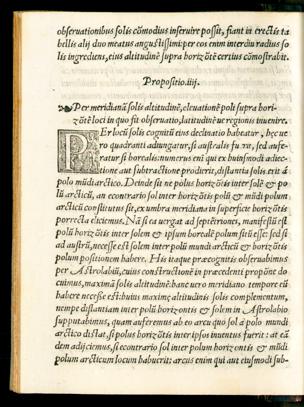 obseruationibus solis cõmodius inseruire possit, fiant in erectis ta
bellis alij duo meatus angustissimi: per eos enim interdiu radius so
lis ingrediens, eius altitudinẽ supra horizõtẽ certius cõmostrabit.
Propositio.iiij.
Per meridianã solis altitudinẽ, eleuationẽ poli supra hori-
zõtẽ loci in quo fit obseruatio, latitudinẽ ue regionis inuenire.
PEr locũ solis cognitũ eius declinatio habeatur, hęc ue
ro quadranti adiungatur, si australis fuerit, sed aufe-
ratur si borealis: numerus eni qui ex huiusmodi adiec-
tione aut subtractione prodierit, distantia solis erit á
polo mũdi arctico. Deinde sit ne polus horizõtis inter solẽ & po
lũ arcticũ, an econtrario sol inter horizõtis polũ & mũdi polum
arcticũ constitutus sit, ex umbra meridiana in superficie horizõtis
porrecta eliciemus. Nã si ea uergat ad septẽtriones, manifestũ est
polũ horizõtis inter solem & ipsum borealẽ polum sitũ esse: sed si
ad austrũ, necesse est solem inter polũ mundi arcticũ & horizõtis
polum positionem habere. His itaque præcognitis obseruabimus
per Astrolabiũ, cuius constructionẽ in præcedenti propõne do
cuimus, maximã solis altitudinẽ: hanc uero meridiano tempore eũ
habere necesse est: huius maximę altitudinis solis complementum,
nempe distantiam inter polũ horizontis & solem in Astrolabio
supputabimus, quam auferemus ab eo arcu quo sol á polo mundi
arctico distat, si polus horizõtis inter ipsos inuentus fuerit: at eã
dem adijciemus, si econtrario sol inter polum horizontis & mũdi
polum arcticum locum habuerit: arcus enim qui aut eiusmodi sub-